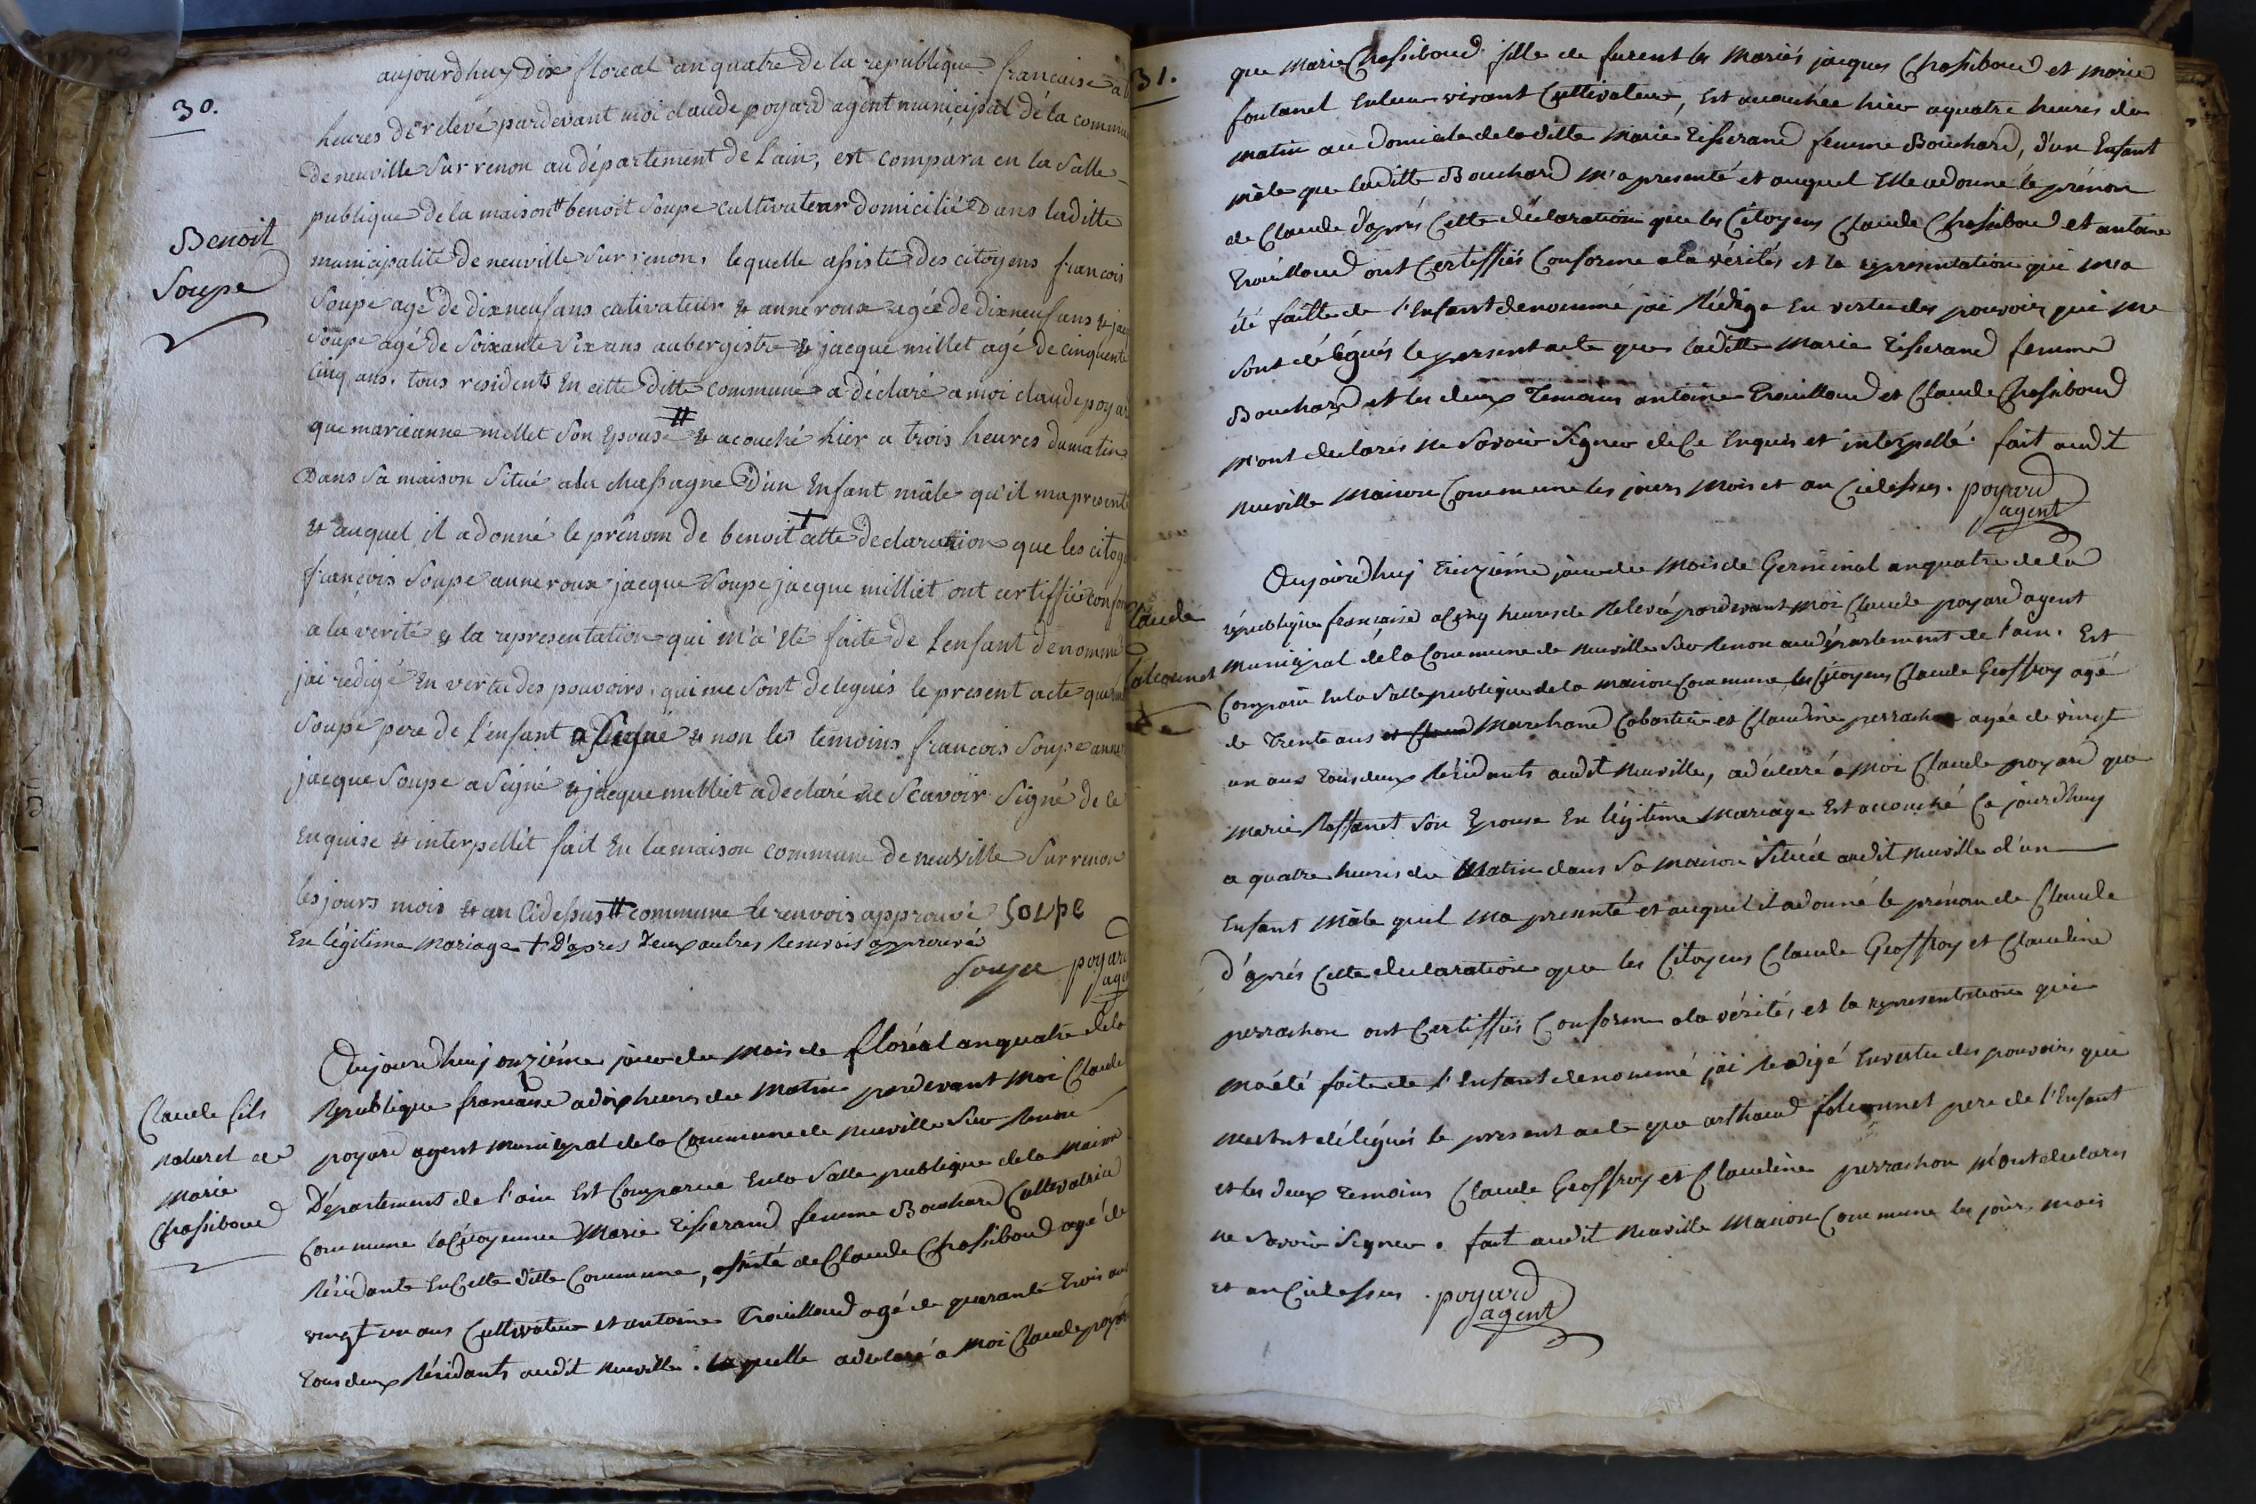 30.
aujourdhuy Dix floréal an quatre de la republique francaise a
heures de relevé pardevant moi claude poyard agent municipal de la commu
De neuville Sur renon au département de l'ain, est comparu en la Salle
publique de la maison # benoit Soupe cultivateur domicilié Dans laditte
municipalité de neuville Sur renon, lequelle assisté des citoyens francois
Soupe agé de dix neuf ans cultivateur & anne roux agée de dix neuf ans &
Soupe agé de Soixante Six ans aubergiste & jacque millet agé de cinquente
Cinq ans. tous residents En cette Ditte commune a déclaré a moi claude poyar
Benoit
Soupe
que marieanne millet Son Epouse # & acouché hier a trois heures du matin
Dans Sa maison Situé a la chassagne D'un Enfant mâle qu'il ma present
& auquel il a donné le prénom de benoit + cette declaration que les citoy
françois Soupe anne roux jacque Soupe jacque milliet ont certiffié confor
a la verité & la representation qui m'a été faite de L'enfant denommé
jai redigé En vertu des pouvoirs qui me Sont delegués le present acte que
Soupe pere de l'enfant a Signé & non les temoins francois Soupe anne
jacque Soupe a Seigné & jacque milliet a declaré ne Scavoir Signé de ce
Enquise & interpellét fait En la maison commune de neuville Sur renon
les jours mois & an Cidessus # commune le renvois approuvé Soupe
En légitime Mariage + D'après Deux autres Renvois approuvé
Soupe poyard
agent
Aujourdhuj onzième jour du Mois de floréal an quatre de la
Republique francaise a dix heures du Matin pardevant Moi Claude
poyard agent Municipal de la Commune de Neuville Sur Renon
Département de l'ain Est Comparue En la Salle publique de la Maison
Commune la Citoyenne Marie Tisserand femme Bouchard Cultivatrice
Résidante En Cette ditte Commune, assisté de Claude Chassiboud agé de
vingt un ans Cultivateur et antoine Trouilloud agé de quarante Trois ans
Tous deux Résidants audit Neuville. laquelle a declaré a Moi Claude poyard
Claude fils
naturel de
Marie
Chassiboud
31.
que Marie Chassiboud fille de furent les Mariés jacques Chassiboud et Marie
fontanel En leur vivant Cultivateur, Est acouchée hier a quatre heures du
Matin au Domicile de laditte Marie Tisserand femme Bouchard, d'un Enfant
Mâle que laditte Bouchard M'a presenté et auquel Elle a donné le prénom
de Claude d'après Cette déclaration que les Citoyens Claude Chassiboud et antoine
Trouilloud ont Certiffiés Conforme a la vérités et la representation qui M'a
été faitte de l'Enfant denommé jai Rédigé En vertu des pouvoirs qui Me
Sont délégués le present acte que laditte Marie Tisserand femme
Bouchard et les deux Temoins antoine Trouilloud et Claude Chassiboud
M'ont declarés Ne Savoir Signer de Ce Enquis et interpellé. fait audit
Neuville Maison Commune les jours Mois et an Cidessus. poyard
agent
Claude
falconnet
Aujourdhuj Treizième jour du Mois de Germinal an quatre de la
république française a Cinq heures de Relevé pardevant Moi Claude poyard agent
Municipal de la Commune de Neuville Sur Renon au département de l'ain. Est
Comparu En la Salle publique de la Maison Commune les Citoyens Claude Geoffroy agé
de Trente ans Marchand Cabartier et Claudine perrachon agée de vingt
un ans Tous deux Résidants audit Neuville, a déclaré a Moi Claude poyard que
Marie Son Epouse En légitime Mariage Est accouché Ce jourdhuy
a quatre heures du Matin dans Sa Maison Située audit Neuville d'un
Enfant Mâle quil Ma presenté et auquel il a donné le prénom de Claude
d'après Cette declaration que les Citoyens Claude Geoffroy et Claudine
perrachon ont Certiffiés Conforme a la vérités, et la representation qui
Ma été faite de l'Enfant denommé jai Redigé En vertu des pouvoirs qui
Me Sont délégués le present acte que arthaud falconnet pere de l'Enfant
et les deux Temoins Claude Geoffroy et Claudine perrachon M'ont declarés
Ne Savoir Signer. fait audit Neuville Maison Commune les jour, Mois
et an Cidessus. poyard
agent